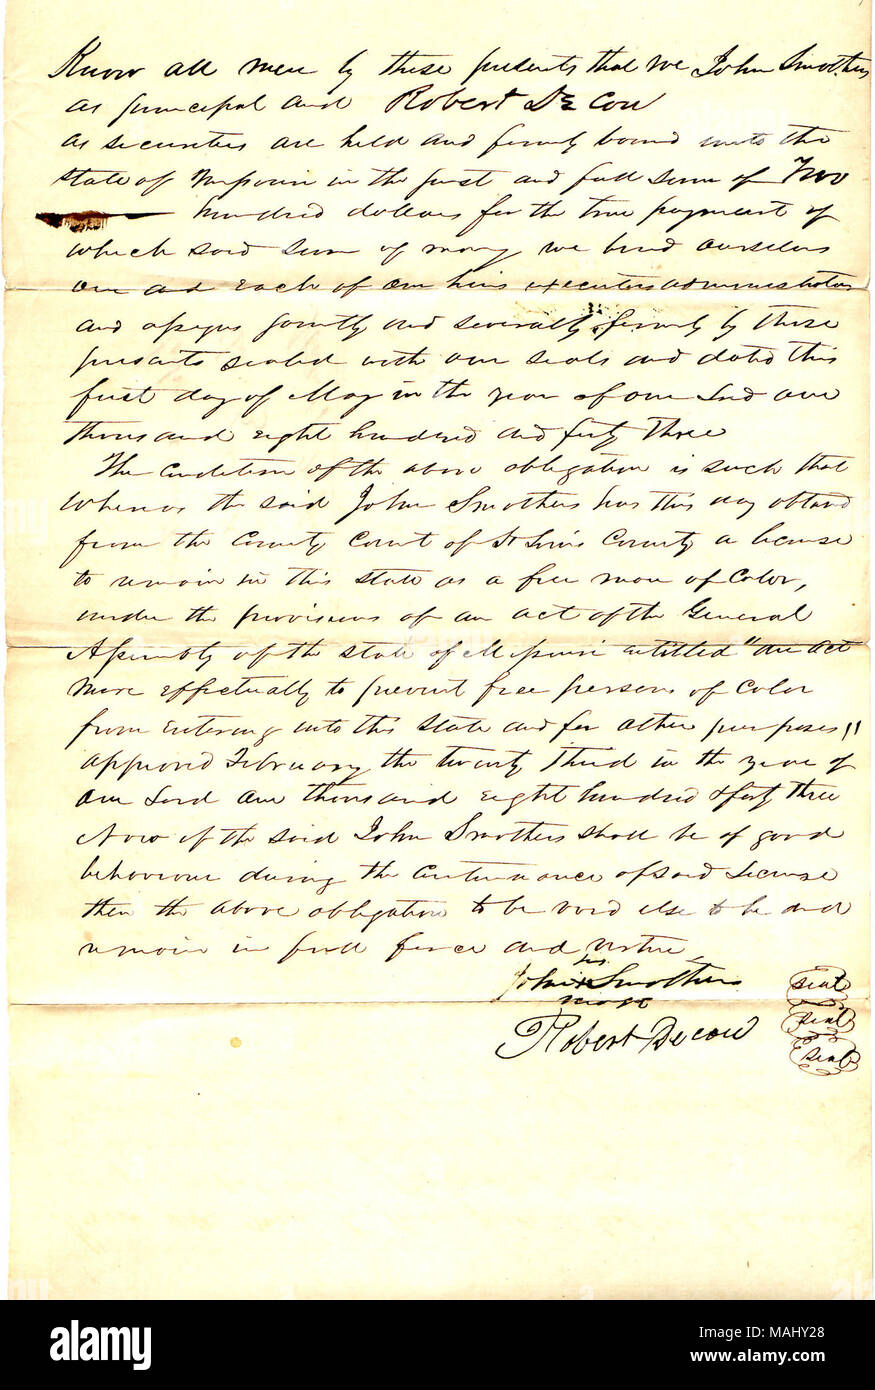 Know all men by these presents that we John Smothers
as principal and Robert De Cou
as securities are held and firmly bound unto the
state of Missouri in the just and full sum of Two
hundred dollars for the true payment of
which said sum of money we bind ourselves
our and each of our heirs executors administrators
and assigns jointly and severally firmly by these
presents sealed with our seals and dated this
first day of May in the year of our Lord one
thousand eight hundred and forty three
The condition of the above obligation is such that
whereas the said John Smothers has this day obtaind
from the County Court of St Louis County a license
to remain in this state as a free man of color,
under the provisions of an act of the General
Assembly of the state of Missouri entitled "an act
more effectually to prevent free persons of color
from entering into this state and for other purposes"
approved February the twenty third in the year of
our Lord one thousand eight hundred & forty three
Now if the said John Smothers shall be of good
behaviour during the continuance of said License
then the above obligation to be void else to be and
remain in full force and virtue
his
John x Smothers seal
mark
seal
Robert Decou seal
alamy
Image ID: MAHY28
www.alamy.com